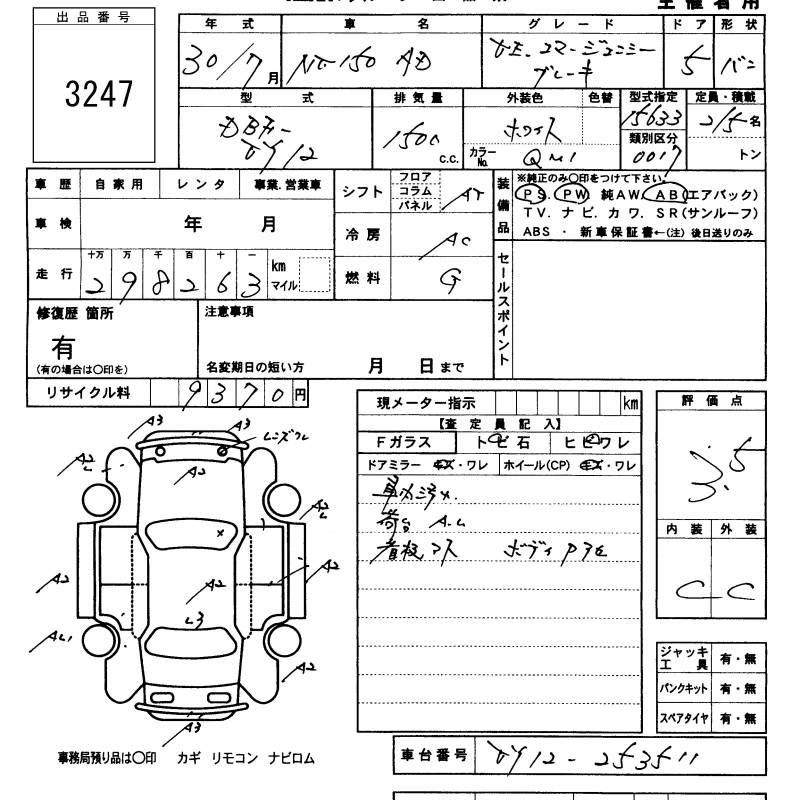 出品番号
3247
年式 車名 グレード ドア 形状
30/7月 NV-150 AD VE.エマージェンシーブレーキ 5 バン
型式 排気量 外装色 色替 型式指定 定員・積載
DBF- 1500 c.c. ホワイト 15633 2/5名
VY12 カラーNo. QM1 類別区分 0017 トン
車歴 自家用 レンタ 事業.営業車
車検 年 月
走行 十万 万 千 百 十 一 km マイル
298263
シフト フロア コラム パネル AT
冷房 AC
燃料 G
装備品
※純正のみ〇印をつけて下さい。
PS. PW. 純AW. AB(エアバック)
TV. ナビ. カワ. SR(サンルーフ)
ABS ・ 新車保証書←(注) 後日送りのみ
セールスポイント
修復歴 箇所
有
(有の場合は〇印を)
注意事項
名変期日の短い方 月 日まで
リサイクル料 9370円
A3 A3
A2 A2
A2
A2 A2
A2
L3
A2
A3
事務局預り品は〇印 カギ リモコン ナビロム
現メーター指示 km
【査定員記入】
Fガラス トビ石 ヒビワレ
ドアミラー キズ・ワレ ホイール(CP) キズ・ワレ
車内汚れ.
荷台 A.L
看板アト ボディ
評価点
3.5
内装 外装
C C
ジャッキ工具 有・無
パンクキット 有・無
スペアタイヤ 有・無
車台番号 VY12-253511